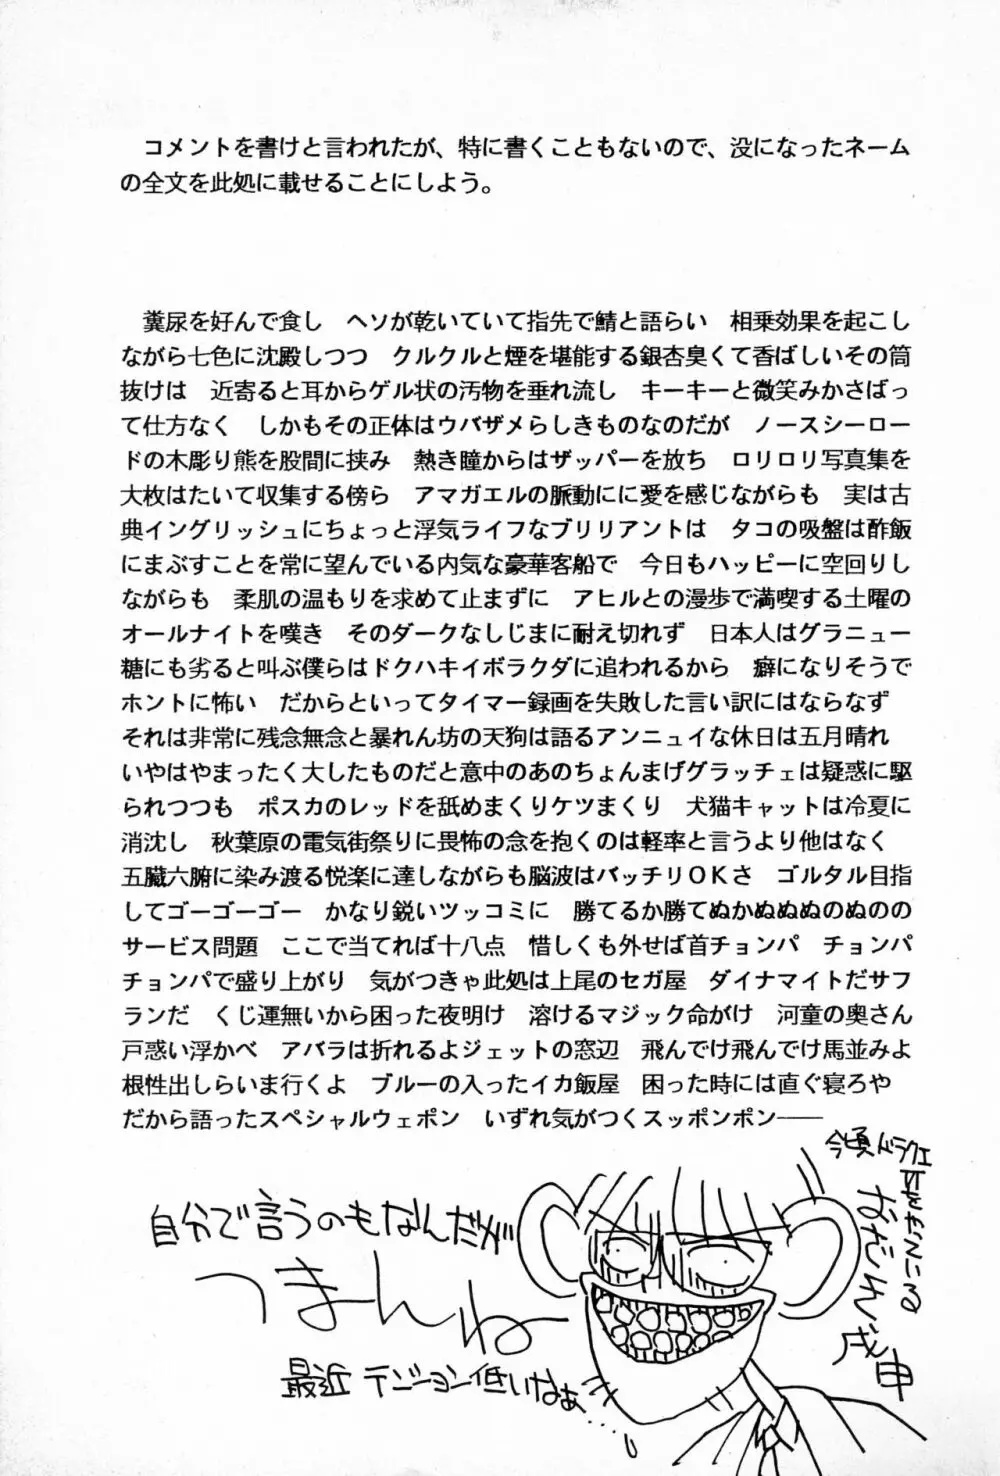 コメントを書けと言われたが、特に書くこともないので、没になったネーム
の全文を此処に載せることにしよう。
糞尿を好んで食し　ヘソが乾いていて指先で鯖と語らい　相乗効果を起こし
ながら七色に沈殿しつつ　クルクルと煙を堪能する銀杏臭くて香ばしいその筒
抜けは　近寄ると耳からゲル状の汚物を垂れ流し　キーキーと微笑みかさばっ
て仕方なく　しかもその正体はウバザメらしきものなのだが　ノースシーロー
ドの木彫り熊を股間に挟み　熱き瞳からはザッパーを放ち　ロリロリ写真集を
大枚はたいて収集する傍ら　アマガエルの脈動にに愛を感じながらも　実は古
典イングリッシュにちょっと浮気ライフなブリリアントは　タコの吸盤は酢飯
にまぶすことを常に望んでいる内気な豪華客船で　今日もハッピーに空回りし
ながらも　柔肌の温もりを求めて止まずに　アヒルとの漫歩で満喫する土曜の
オールナイトを嘆き　そのダークなしじまに耐え切れず　日本人はグラニュー
糖にも劣ると叫ぶ僕らはドクハキイボラクダに追われるから　癖になりそうで
ホントに怖い　だからといってタイマー録画を失敗した言い訳にはならなず
それは非常に残念無念と暴れん坊の天狗は語るアンニュイな休日は五月晴れ
いやはやまったく大したものだと意中のあのちょんまげグラッチェは疑惑に駆
られつつも　ポスカのレッドを舐めまくりケツまくり　犬猫キャットは冷夏に
消沈し　秋葉原の電気街祭りに畏怖の念を抱くのは軽率と言うより他はなく
五臓六腑に染み渡る悦楽に達しながらも脳波はバッチリＯＫさ　ゴルタル目指
してゴーゴーゴー　かなり鋭いツッコミに　勝てるか勝てぬかぬぬぬのぬのの
サービス問題　ここで当てれば十八点　惜しくも外せば首チョンパ　チョンパ
チョンパで盛り上がり　気がつきゃ此処は上尾のセガ屋　ダイナマイトだサフ
ランだ　くじ運無いから困った夜明け　溶けるマジック命がけ　河童の奥さん
戸惑い浮かべ　アバラは折れるよジェットの窓辺　飛んでけ飛んでけ馬並みよ
根性出しらいま行くよ　ブルーの入ったイカ飯屋　困った時には直ぐ寝ろや
だから語ったスペシャルウェポン　いずれ気がつくスッポンポン――
今頃ドラクエ
Ⅵをやっている
おだわら戌申
自分で言うのもなんだが
つまんね
最近 テンション低いなぁ…